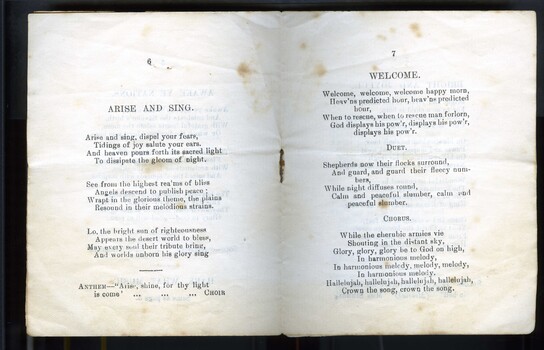 6
ARISE AND SING.
Arise and sing, dispel your fears,
Tidings of joy salute your ears.
And heaven pours forth its sacred light
To dissipate the gloom of night.
See from the highest realms of bliss
Angels descend to publish peace;
Wrapt in the glorious theme, the plains
Resound in their melodious strains.
Lo, the bright sun of righteousness
Appears the desert world to bless,
May every soul their tribute bring,
And worlds unborn his glory sing
ANTHEM—"Arise, shine, for thy light
is come' ... ... ... CHOIR
7
WELCOME.
Welcome, welcome, welcome happy morn,
Heav'ns predicted hour, heav'ns predicted
hour,
When to rescue, when to rescue man forlorn,
God displays his pow'r, displays his pow'r,
displays his pow'r.
DUET.
Shepherds now their flocks surround,
And guard, and guard their fleecy num-
bers,
While night diffuses round,
Calm and peaceful slumber, calm and
peaceful slumber.
CHORUS.
While the cherubic armies vie
Shouting in the distant sky,
Glory, glory, glory be to God on high,
In harmonious melody,
In harmonious melody, melody, melody,
In harmonious melody.
Hallelujah, hallelujah, hallelujah, hallelujah,
Crown the song, crown the song.